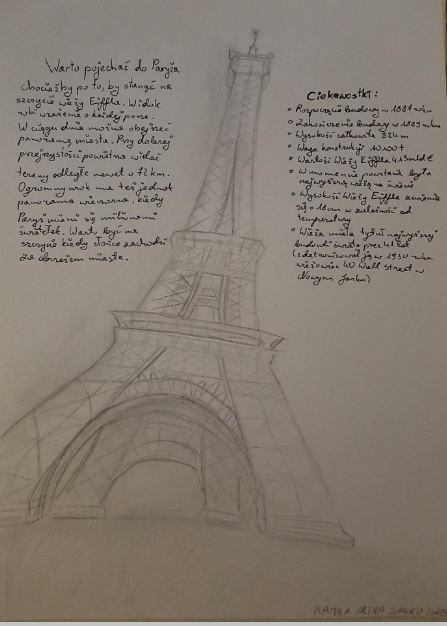 Warto pojechać do Paryża
chociażby po to, by stanąć na
szczycie Wieży Eiffla. Widok
robi wrażenie o każdej porze.
W ciągu dnia można obejrzeć
panoramę miasta. Przy dobrej
przejrzystości powietrza widać
tereny odległe nawet o 72 km.
Ogromny urok ma też jednak
panorama wieczorna, kiedy
Paryż mieni się milionami
światełek. Warto być na
szczycie kiedy słońce zachodzi
za obrzeżem miasta.
Ciekawostki:
Rozpoczęcie budowy w 1887 roku
Zakończenie budowy w 1889 roku
Wysokość całkowita 324 m
Waga konstrukcji 10 100 t
Wartość Wieży Eiffla
W momencie powstania była
najwyższą wieżą na świecie
Wysokość Wieży Eiffla zmienia
się o 18 cm w zależność od
temperatury
Wieża miała tytuł najwyższej
budowli świata przez 41 lat
(zdetronizował ją w 1930 roku
wieżowiec 40 Wall Street w
Nowym Jorku)
KAMILA